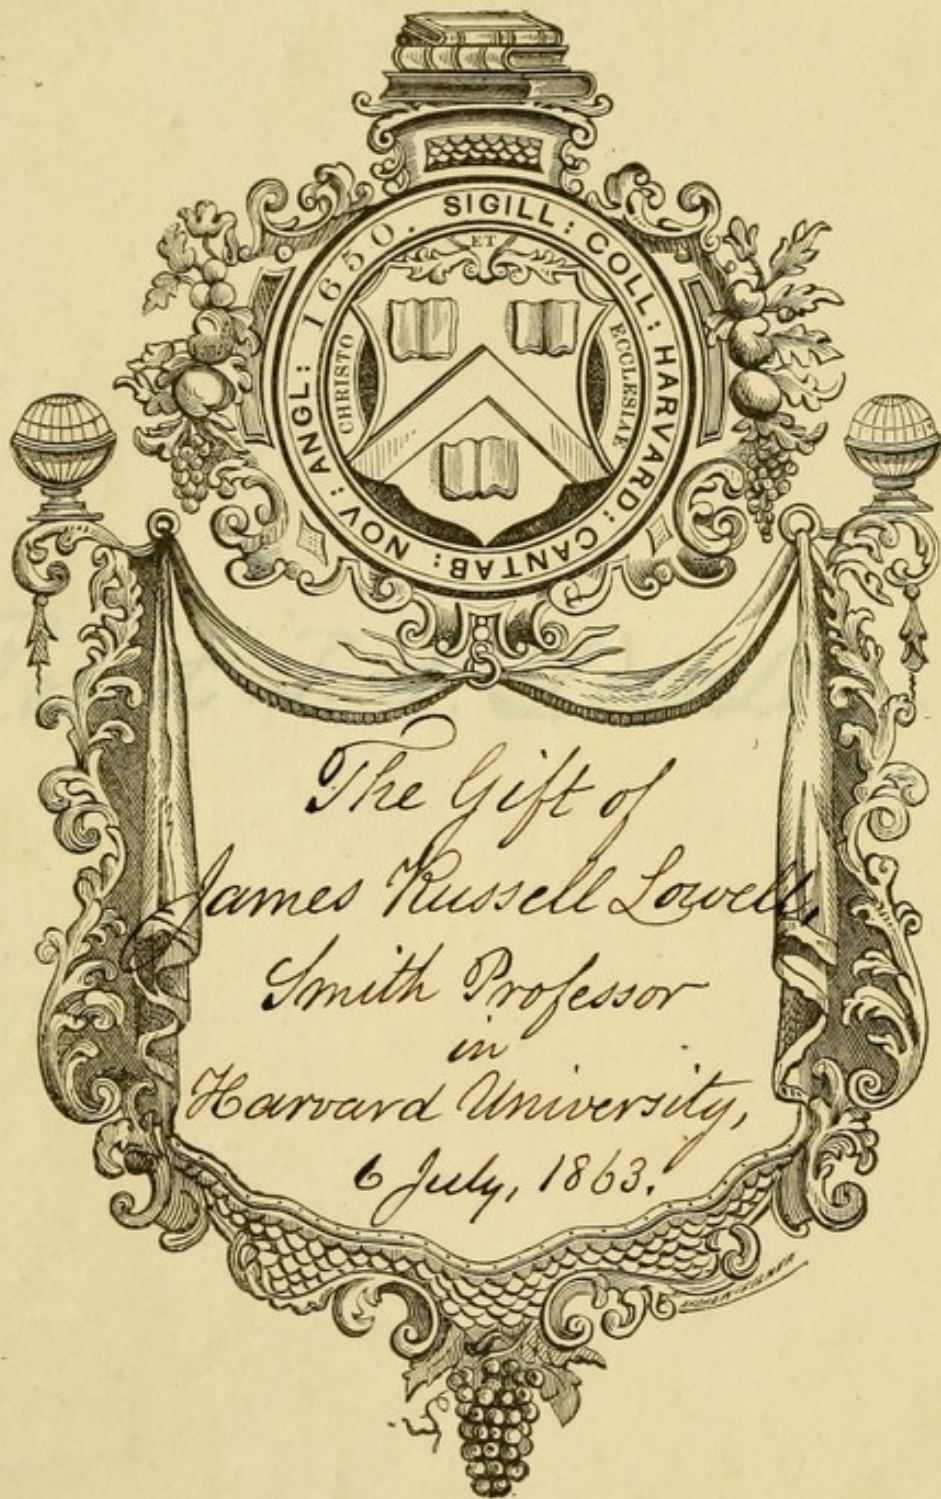 SIGILL: COLL: HARVARD: CANTAB: NOV: ANGL: 1650.
CHRISTO
ET
ECCLESIAE
The Gift of
James Russell Lowell,
Smith Professor
in
Harvard University,
6 July, 1863.